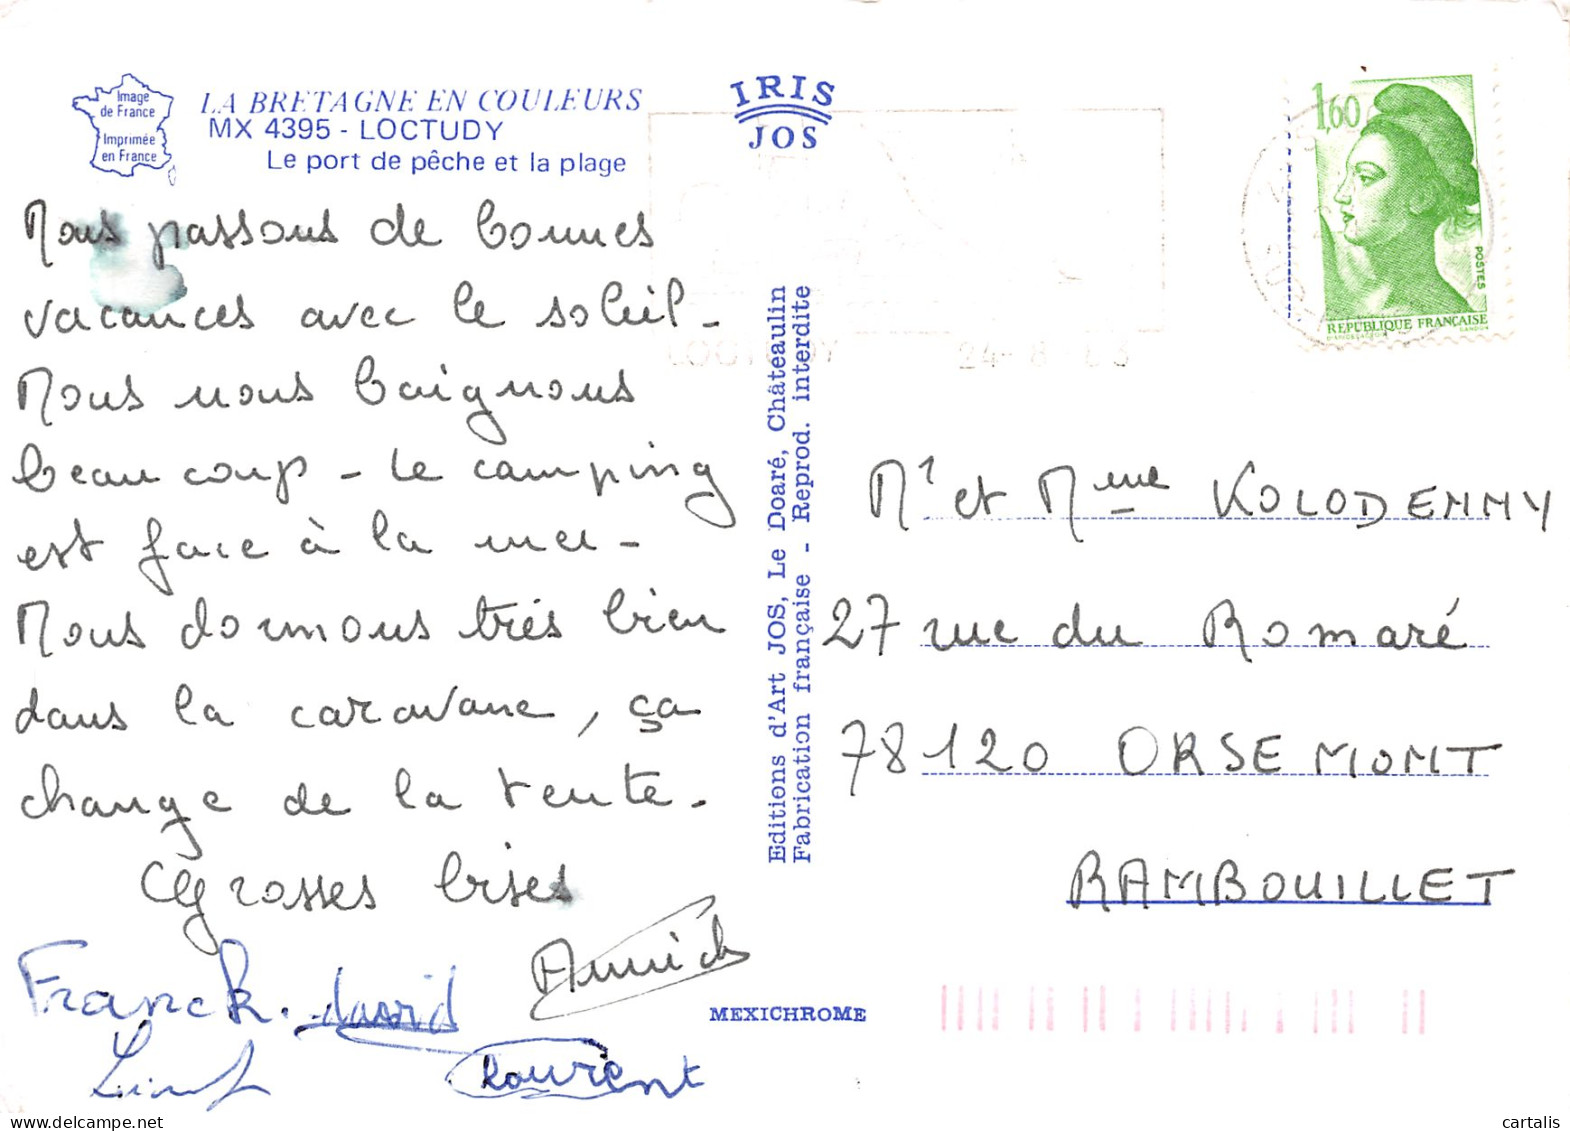 Image
de France
Imprimée
en France
LA BRETAGNE EN COULEURS
MX 4395 - LOCTUDY
Le port de pêche et la plage
IRIS
JOS
1,60
POSTES
REPUBLIQUE FRANÇAISE
LOCTUDY 24-8
Nous passons de bonnes
vacances avec le soleil -
Nous nous baignons
beaucoup - le camping
est face à la mer -
Nous dormons très bien
dans la caravane, ça
change de la tente -
Grosses bises
Annick
Franck. david
Laurent
Editions d'Art JOS, Le Doaré, Châteaulin
Fabrication française - Reprod. interdite
Mr et Mme KOLODENNY
27 rue du Romaré
78120 ORSEMONT
RAMBOUILLET
MEXICHROME
cartalis